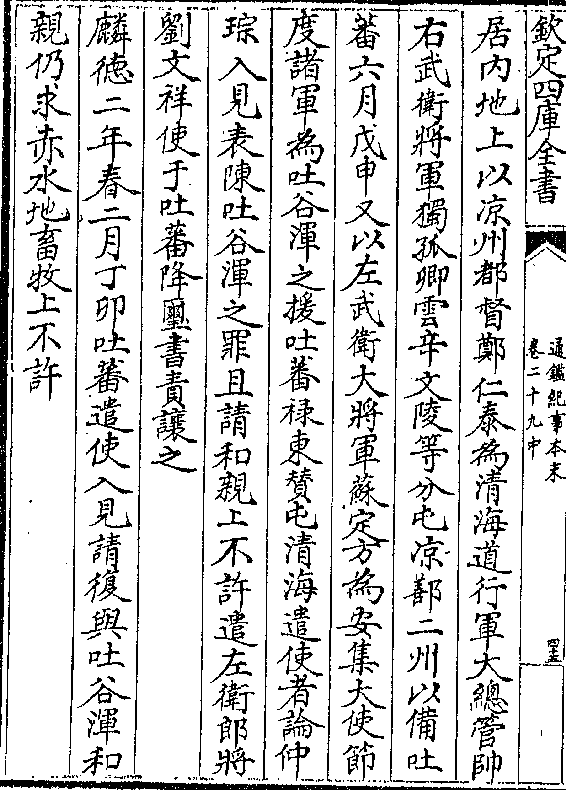 欽定四庫全書
通鑑紀事本末
卷二十九中
四十五
居内地上以凉州都督鄭仁泰為清海道行軍大總管帥
右武衛將軍獨孤卿雲辛文陵等分屯凉鄯二州以備吐
蕃六月戊申又以左武衛大將軍蘇定方為安集大使節
度諸軍為吐谷渾之援吐蕃禄東贊屯清海遣使者論仲
琮入見表陳吐谷渾之罪且請和親上不許遣左衛郎將
劉文祥使于吐蕃降璽書責讓之
麟德二年春二月丁卯吐蕃遣使入見請復與吐谷渾和
親仍求赤水地畜牧上不許